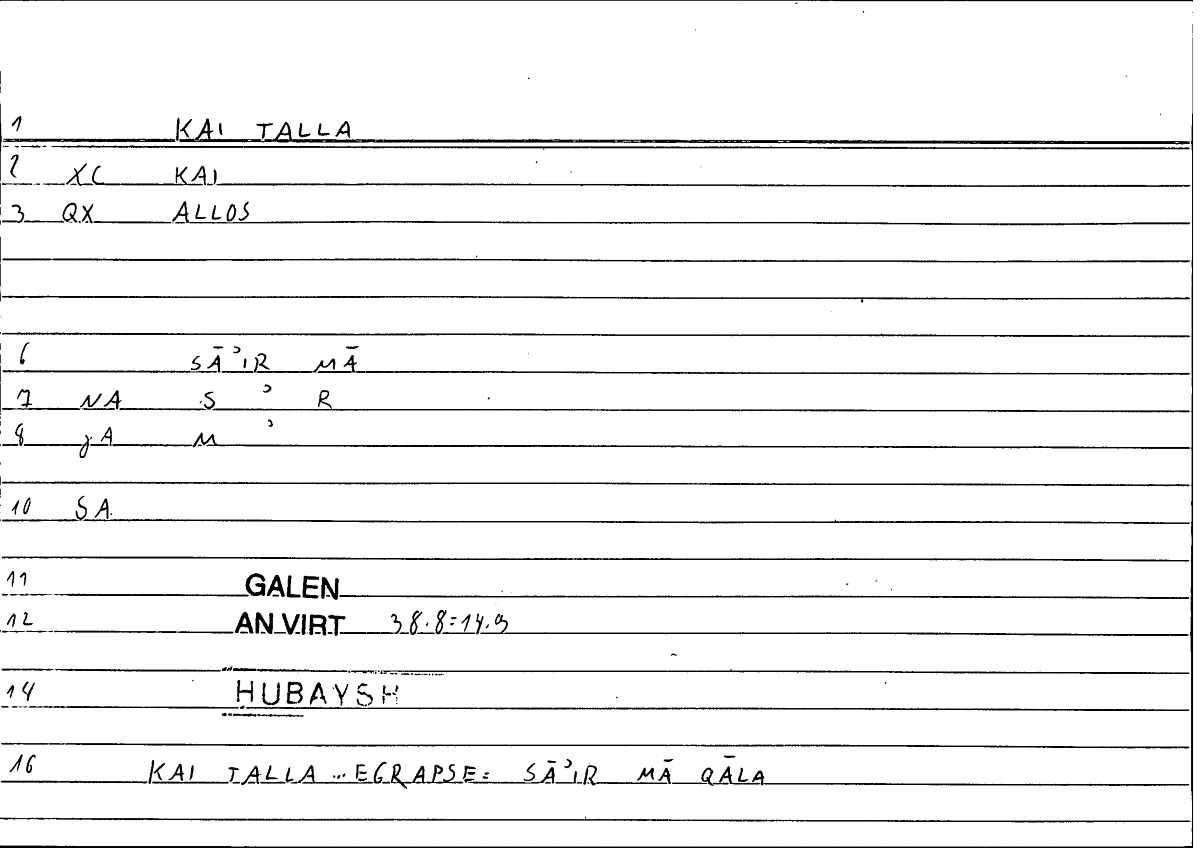 1 KAI TALLA
2 XC KAI
3 QX ALLOS
6 SĀʾIR MĀ
7 NA S ʾ R
8 JA M ʾ
10 SA
11 GALEN
12 AN VIRT 38.8=14.9
14 HUBAYSH
16 KAI TALLA ... EGRAPSE = SĀʾIR MĀ QĀLA